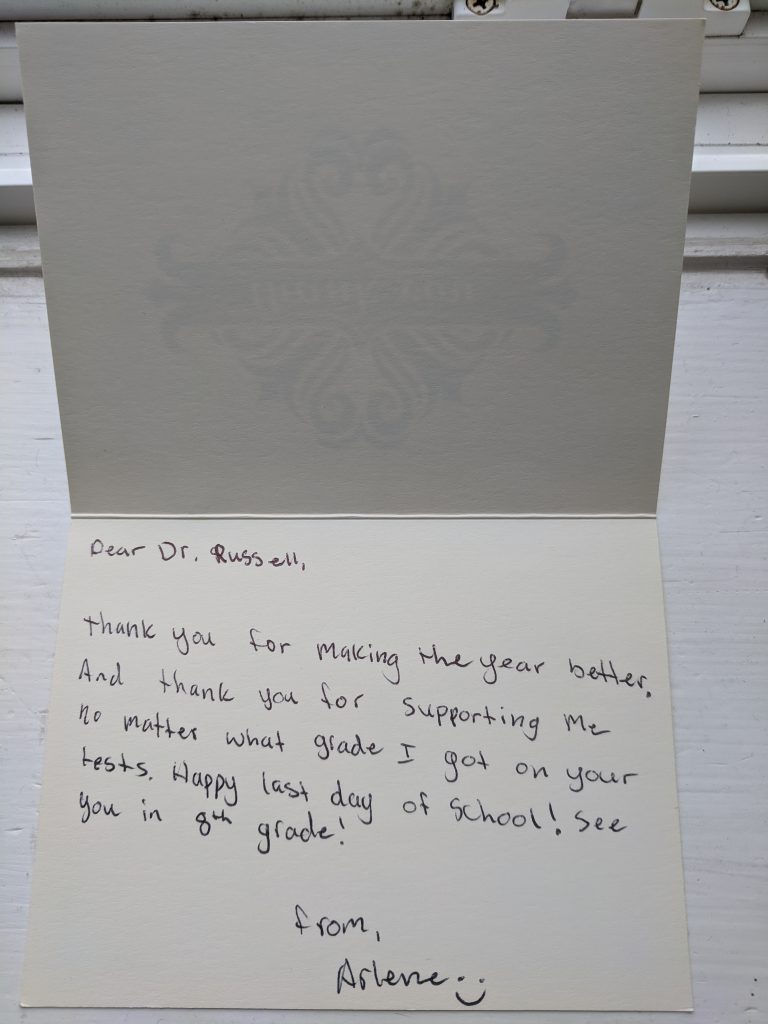 Dear Dr. Russell,
Thank you for making the year better.
And thank you for supporting me
no matter what grade I got on your
tests. Happy last day of school! See
you in 8th grade!
from,
Arlene